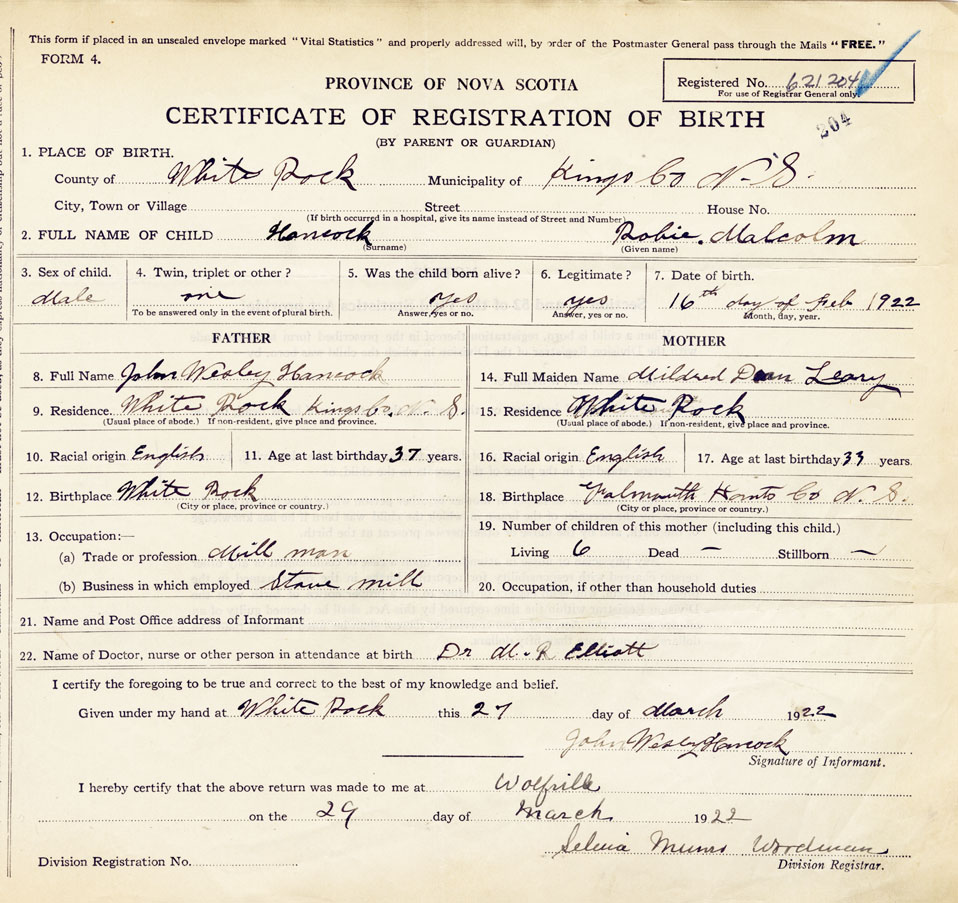 This form if placed in an unsealed envelope marked "Vital Statistics" and properly addressed will, by order of the Postmaster General pass through the Mails "FREE."
FORM 4.
Registered No. 621204
For use of Registrar General only.
204
PROVINCE OF NOVA SCOTIA
CERTIFICATE OF REGISTRATION OF BIRTH
(BY PARENT OR GUARDIAN)
1. PLACE OF BIRTH.
County of White Rock Municipality of Kings Co N. S.
City, Town or Village Street House No.
(If birth occurred in a hospital, give its name instead of Street and Number)
2. FULL NAME OF CHILD Hancock Robie. Malcolm
(Surname) (Given name)
3. Sex of child. 4. Twin, triplet or other? 5. Was the child born alive? 6. Legitimate? 7. Date of birth.
Male one yes yes 16th day of Feb 1922
To be answered only in the event of plural birth. Answer, yes or no. Answer, yes or no. Month, day, year.
FATHER MOTHER
8. Full Name John Wesley Hancock 14. Full Maiden Name Mildred Leary
9. Residence. White Rock Kings Co. N. S. 15. Residence White Rock
(Usual place of abode.) If non-resident, give place and province. (Usual place of abode.) If non-resident, give place and province.
10. Racial origin English 11. Age at last birthday 37 years. 16. Racial origin English 17. Age at last birthday 33 years.
12. Birthplace White Rock 18. Birthplace Falmouth Hants Co N. S.
(City or place, province or country.) (City or place, province or country.)
13. Occupation:— 19. Number of children of this mother (including this child.)
(a) Trade or profession Mill man Living 6 Dead — Stillborn —
(b) Business in which employed Stave mill 20. Occupation, if other than household duties
21. Name and Post Office address of Informant
22. Name of Doctor, nurse or other person in attendance at birth Dr M. R Elliott
I certify the foregoing to be true and correct to the best of my knowledge and belief.
Given under my hand at White Rock this 27 day of March 1922
John Wesley Hancock
Signature of Informant.
I hereby certify that the above return was made to me at Wolfville
on the 29 day of March 1922
Munro Woodman
Division Registration No. Division Registrar.